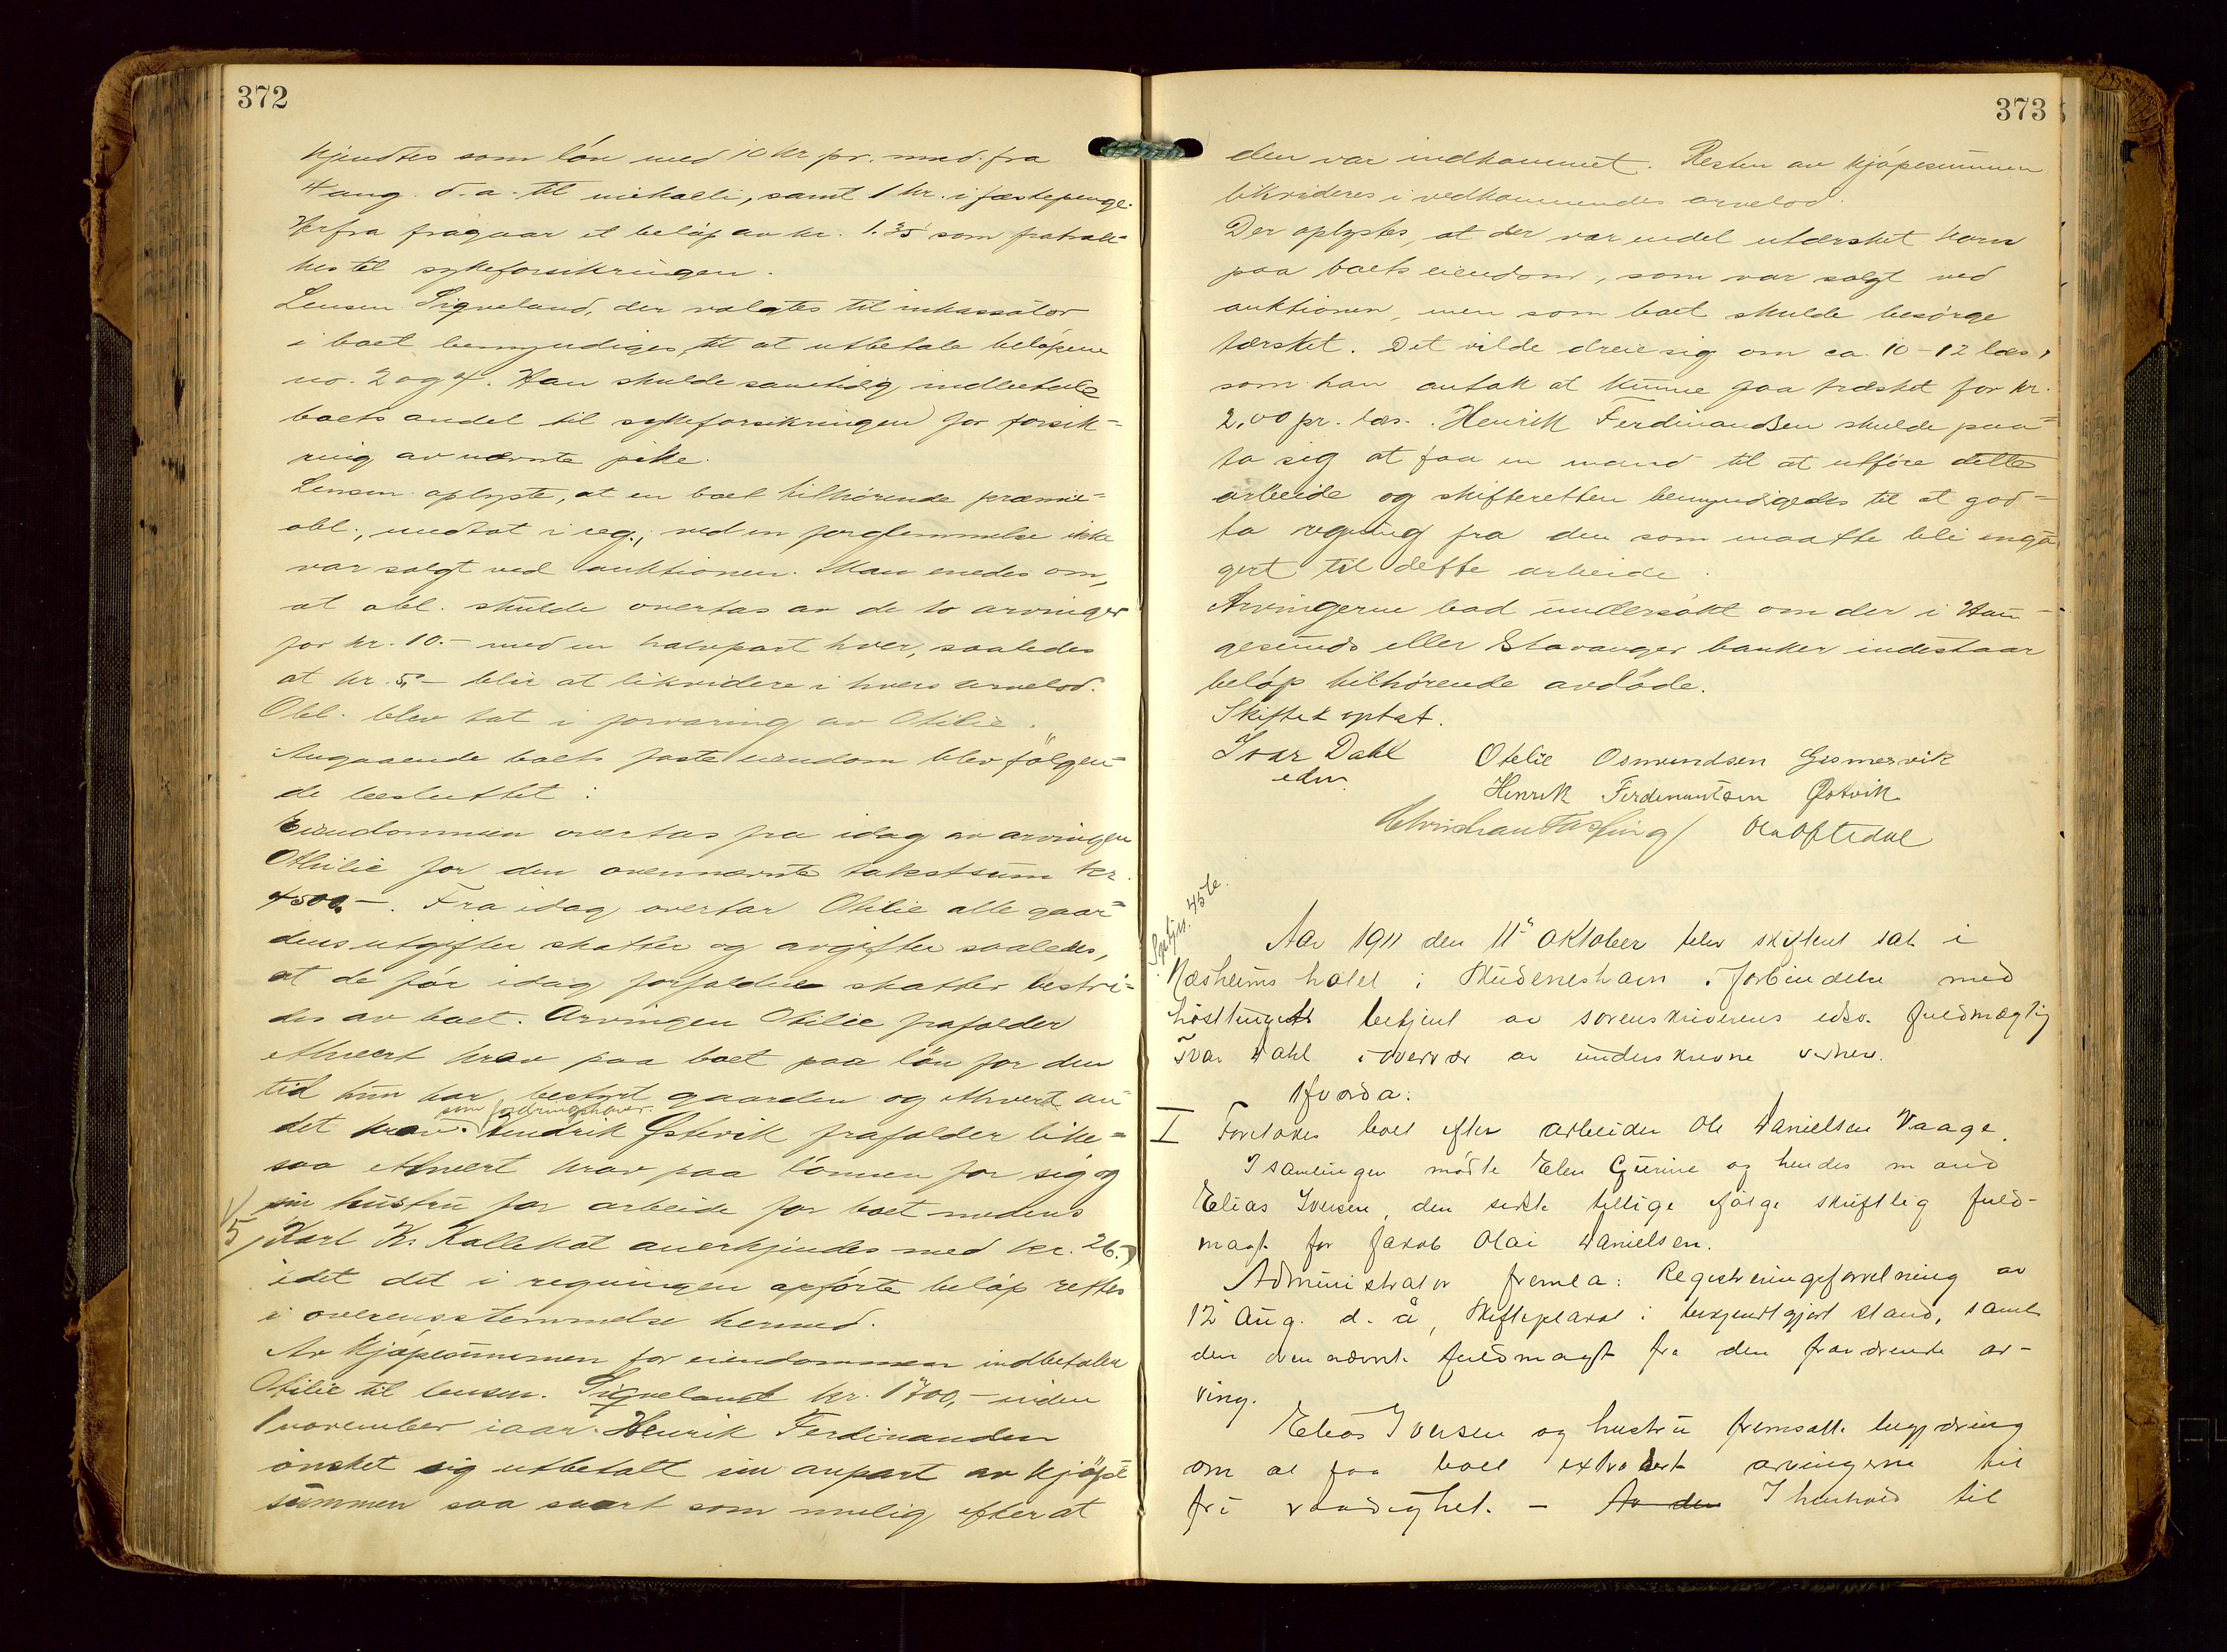 372
kjendtes som løn med 10 kr pr. mnd. fra
4 aug. d. a. til mikaeli, samt 1 kr. i fæstepenge.
Herfra fragaar et beløp av kr. 1.35 som fratræk-
kes til sykeforsikringen.
Lensm. Sigveland, der valgtes til inkassator
i boet bemyndiges til at utbetale beløpene
no. 2 og 4. Han skulde samtidig indbetale
boets andel til sykeforsikringen for forsik-
ring av nævnte pike.
Lensm. oplyste, at en boet tilhørende præmie-
obl., undtat i reg., ved en forglemmelse ikke
var solgt ved auktionen. Man enedes om,
at obl. skulde overtas av de to arvinger
for kr. 10.- med en halvpart hver, saaledes
at kr. 5,- blir at likvidere i hvers arvelod.
Obl. blev tat i forvaring av Otilie.
Angaaende boets faste eiendom blev følgen-
de besluttet:
Eiendommen overtas fra idag av arvingen
Othilie for den ovennævnte takstsum kr.
4500.-. Fra idag overtar Otilie alle gaar-
dens utgifter skatter og avgifter saaledes,
at de før idag forfaldne skatter bestri-
des av boet. Arvingen Otilie frafalder
ethvert krav paa boet paa løn for den
tid hun har bestyrt gaarden og ethvert an-
som fordringshaver.
det krav. Hendrik Østvik frafalder like-
saa ethvert krav paa lønnen for sig og
sin hustru for arbeide for boet medens
5/ Karl K. Kallekat anerkjendes med kr. 26.-)
idet det i regningen opførte beløp rettes
i overensstemmelse hermed.
Av kjøpesummen for eiendommen indbetaler
Otilie til lensm. Sigveland kr. 1700,- inden
1 november iaar. Henrik Ferdinandsen
ønsket sig utbetalt sin anpart av kjøpe
summen saa snart som mulig efter at
373
den var indkommet. Resten av kjøpesummen
likvideres i vedkommendes arvelod.
Der oplystes, at der var endel utærsket korn
paa boets eiendom, som var solgt ved
auktionen, men som boet skulde besørge
tærsket. Det vilde dreie sig om ca. 10-12 læs,
som han antok at kunne faa træsket for kr.
2,00 pr. læs. Henrik Ferdinandsen skulde paa-
ta sig at faa en mand til at utføre dette
arbeide og skifteretten bemyndigedes til at god-
ta regning fra den som maatte bli enga
gert til dette arbeide.
Arvingerne bad undersøkt om der i Hau-
gesunds eller Stavanger banker indestaar
beløp tilhørende avdøde.
Skiftet optat.
Ivar Dahl
edsv.
Otelie Osmundsen Gismervik
Henrik Ferdinantsen Østvik
Ola Oftedal
Aar 1911 den 11 oktober blev skifteret sat i
Næsheims hotel i Skudeneshavn i forbindelse med
høsttinget betjent av sorenskriverens edsv. fuldmægtig
Ivar Dahl i overvær av underskrevne vidner.
Hvorda:
I Foretokes boet efter arbeider Ole Danielsen Vaage.
I samlingen mødte Elen Gurine og hendes mand
Elias Iversen, den sidste tillige ifølge skriftlig fuld-
magt for Jakob Olai Danielsen.
Administrator fremla: Registreringsforretning av
12 aug. d. å, skifteplakat i bekjendtgjort stand, samt
den ovennævnte fuldmagt fra den fraværende ar-
ving.
Elias Iversen og hustru fremsatte begjæring
om at faa boet extradert arvingerne til
fri raadighet. - Av den I henhold til